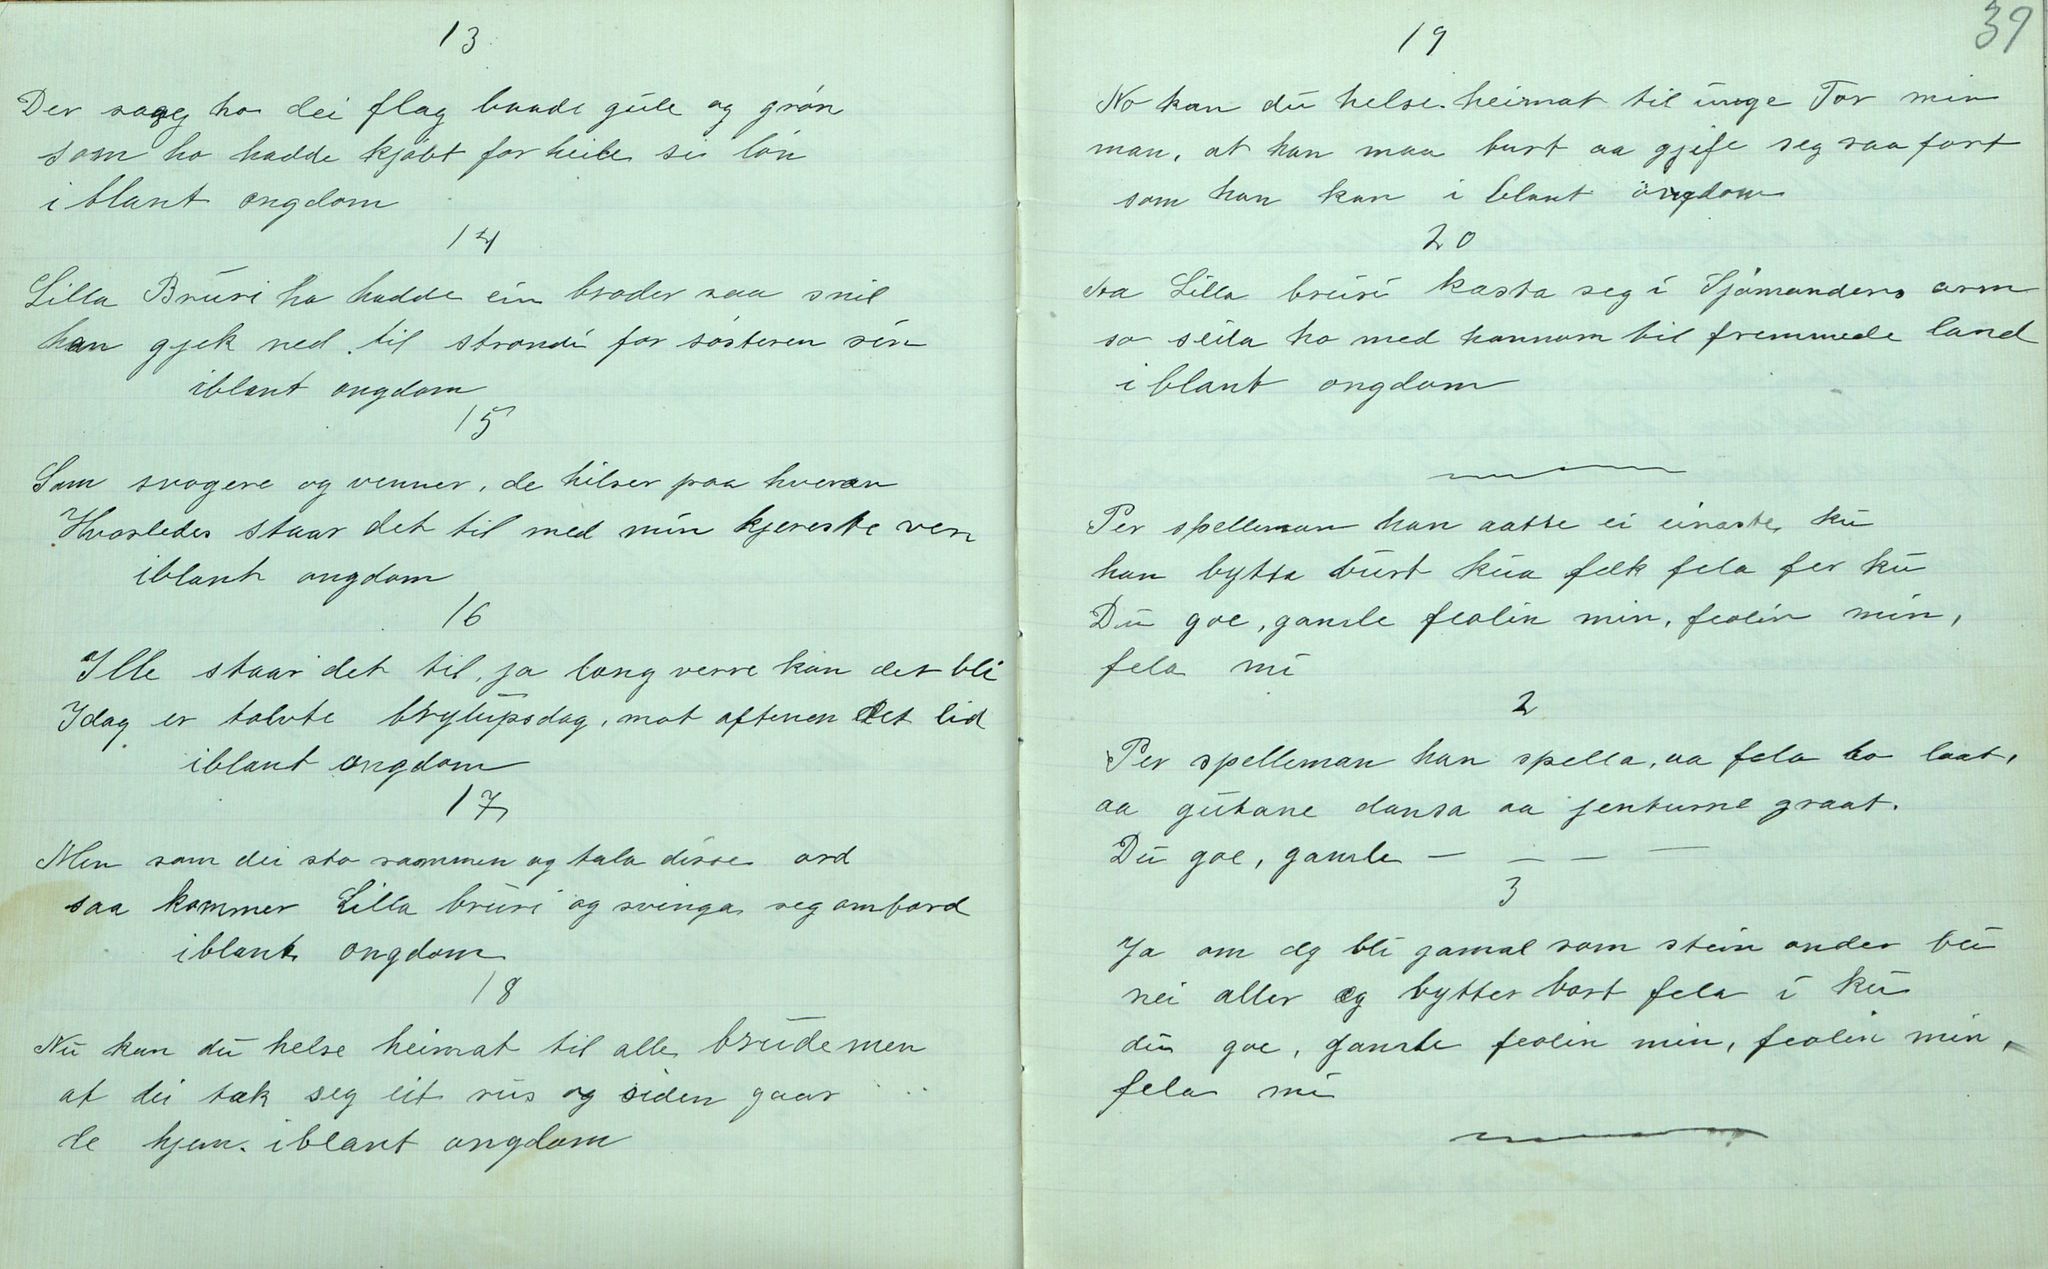 13
Der saag ho dei flag baade gule og grøn
som ho hadde kjøbt for heile si løn
iblant ongdom
14
Lilla Bruri ho hadde ein broder saa snil
han gjek ned til strondi for søsteren sin
iblant ongdom
15
Som svogere og venner, de hilser paa hveran
Hvorledes staar det til med min kjereste ven
iblant ongdom
16
Ille staar det til, ja lang verre kan det bli
Idag er tolvte brylupsdag, mot aftenen det lid
iblant ongdom
17
Men som dei sto sammen og tala disse ord
saa kommer Lilla bruri og svinga seg ombord
iblant ongdom
18
Nu kan du helse heimat til alle brudemen
at dei tæk seg eit rus og siden gaar
de hjem. iblant ongdom
39
19
No kan du helse heimat til unge Tor min
man, at han maa burt aa gjife seg saa fort
som han kan i blant ongdom
20
Aa Lilla bruri kasta seg i Sjømandens arm
so seila ho med honnom til fremmede land
iblant ongdom
Per spelleman han aatte ei einaste ku
han bytta burt kua fek fela fer ku
Du goe, gamle feolin min, feolin min,
fela mi
2
Per spelleman han spella, aa fela ho laat,
aa gutane dansa aa jenturne graat.
Du goe, gamle — — — —
3
Ja om eg bli gamal som stein onder bru
nei aller eg bytter bort fela i ku
du goe, gamle feolin min, feolin min,
fela mi